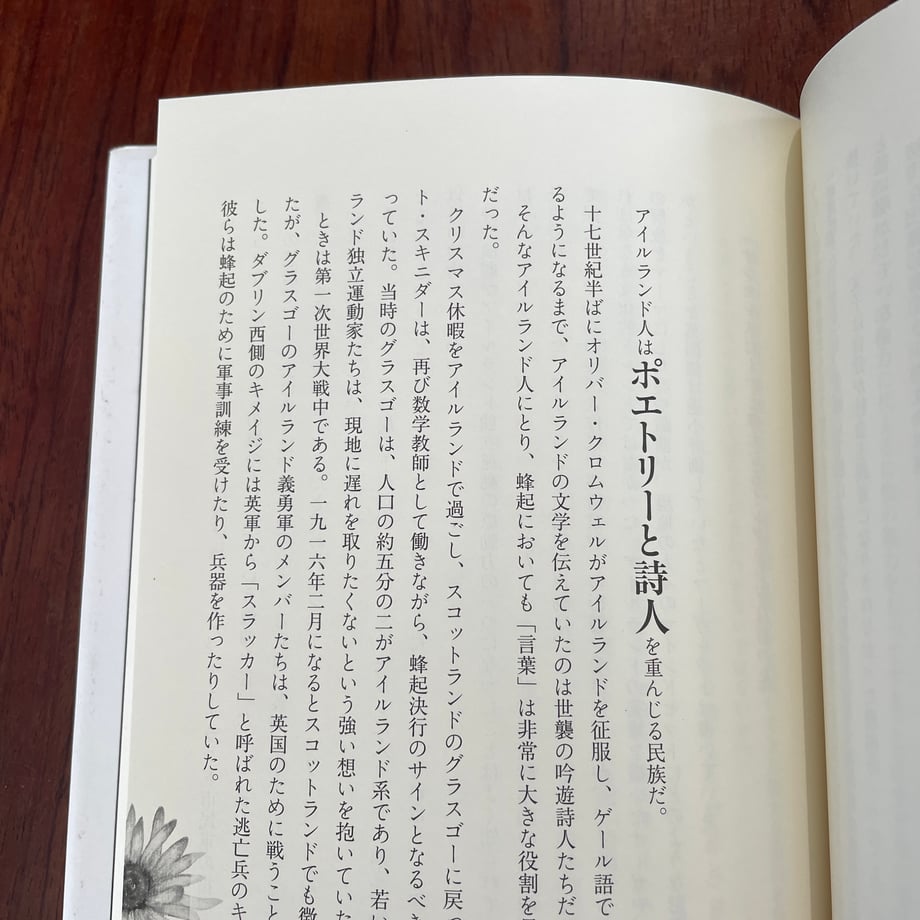 アイルランド人はポエトリーと詩人を重んじる民族だ。
十七世紀半ばにオリバー・クロムウェルがアイルランドを征服し、ゲール語で
るようになるまで、アイルランドの文学を伝えていたのは世襲の吟遊詩人たちだ
そんなアイルランド人にとり、蜂起においても「言葉」は非常に大きな役割を
だった。
クリスマス休暇をアイルランドで過ごし、スコットランドのグラスゴーに戻っ
ト・スキニダーは、再び数学教師として働きながら、蜂起決行のサインとなるべ
っていた。当時のグラスゴーは、人口の約五分の二がアイルランド系であり、若い
ランド独立運動家たちは、現地に遅れを取りたくないという強い想いを抱いていた
ときは第一次世界大戦中である。一九一六年二月になるとスコットランドでも微
たが、グラスゴーのアイルランド義勇軍のメンバーたちは、英国のために戦うこと
した。ダブリン西側のキメイジには英軍から「スラッカー」と呼ばれた逃亡兵のキ
彼らは蜂起のために軍事訓練を受けたり、兵器を作ったりしていた。